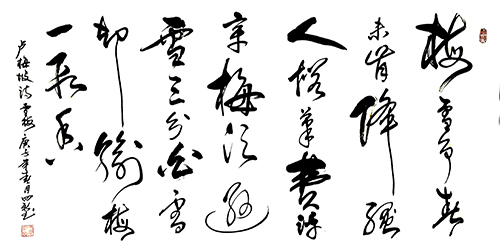 梅雪争春
未肯降骚
人搁笔费评
章梅须逊
雪三分白雪
却输梅
一段香
卢梅坡诗雪梅庚子年春月